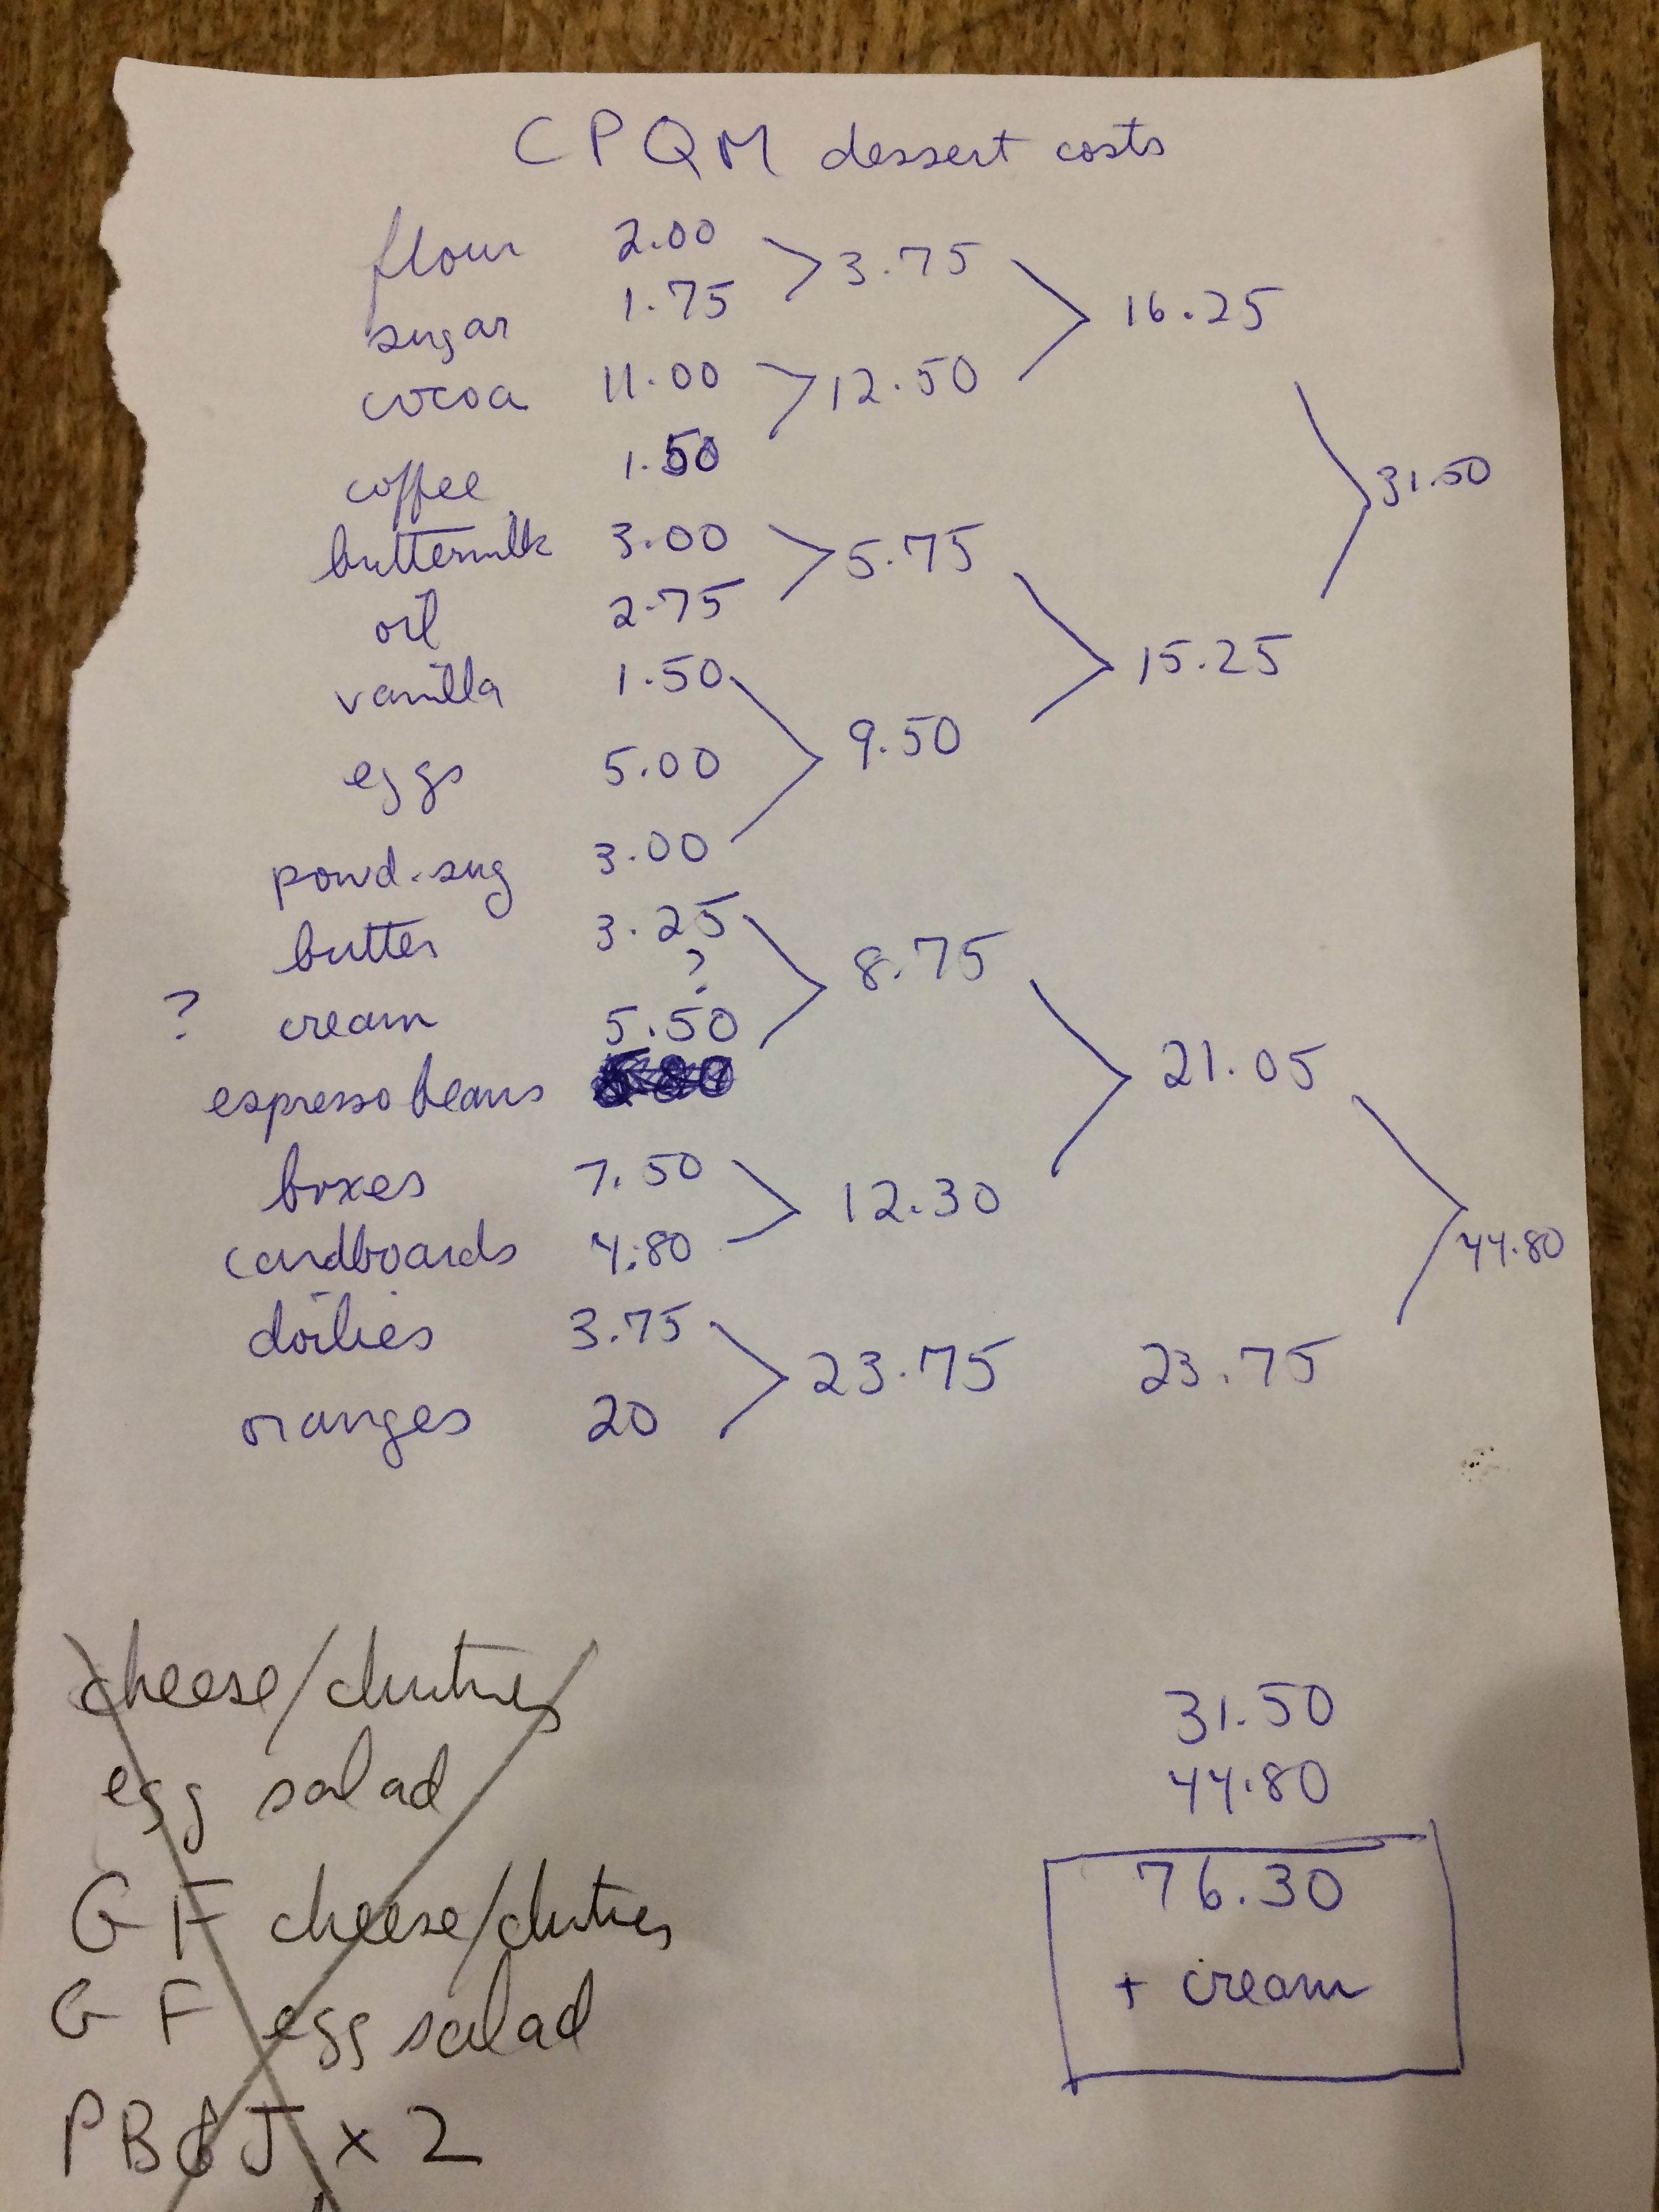 CPQM dessert costs
flour 2.00 3.75
sugar 1.75 16.25
cocoa 11.00 12.50
coffee 1.50 31.50
buttermilk 3.00 5.75
oil 2.75 15.25
vanilla 1.50
eggs 5.00 9.50
powd. sug 3.00
butter 3.25 8.75
? cream ? 5.50 21.05
espresso beans
boxes 7.50 12.30
cardboards 4.80 44.80
doilies 3.75 23.75 23.75
oranges 20
cheese/chutney
egg salad
GF cheese/chutney
GF egg salad
PB&J x 2
31.50
44.80
76.30
+ cream